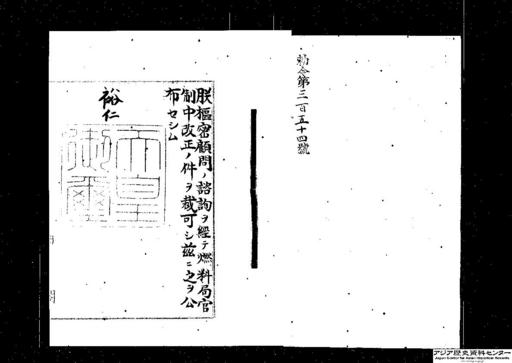 勅令第三百五十四號
朕樞密顧問ノ諮詢ヲ經テ燃料局官
制中改正ノ件ヲ裁可シ茲ニ之ヲ公
布セシム
裕仁
天皇
御璽
アジア歴史資料センター
Japan Center for Asian Historical Records